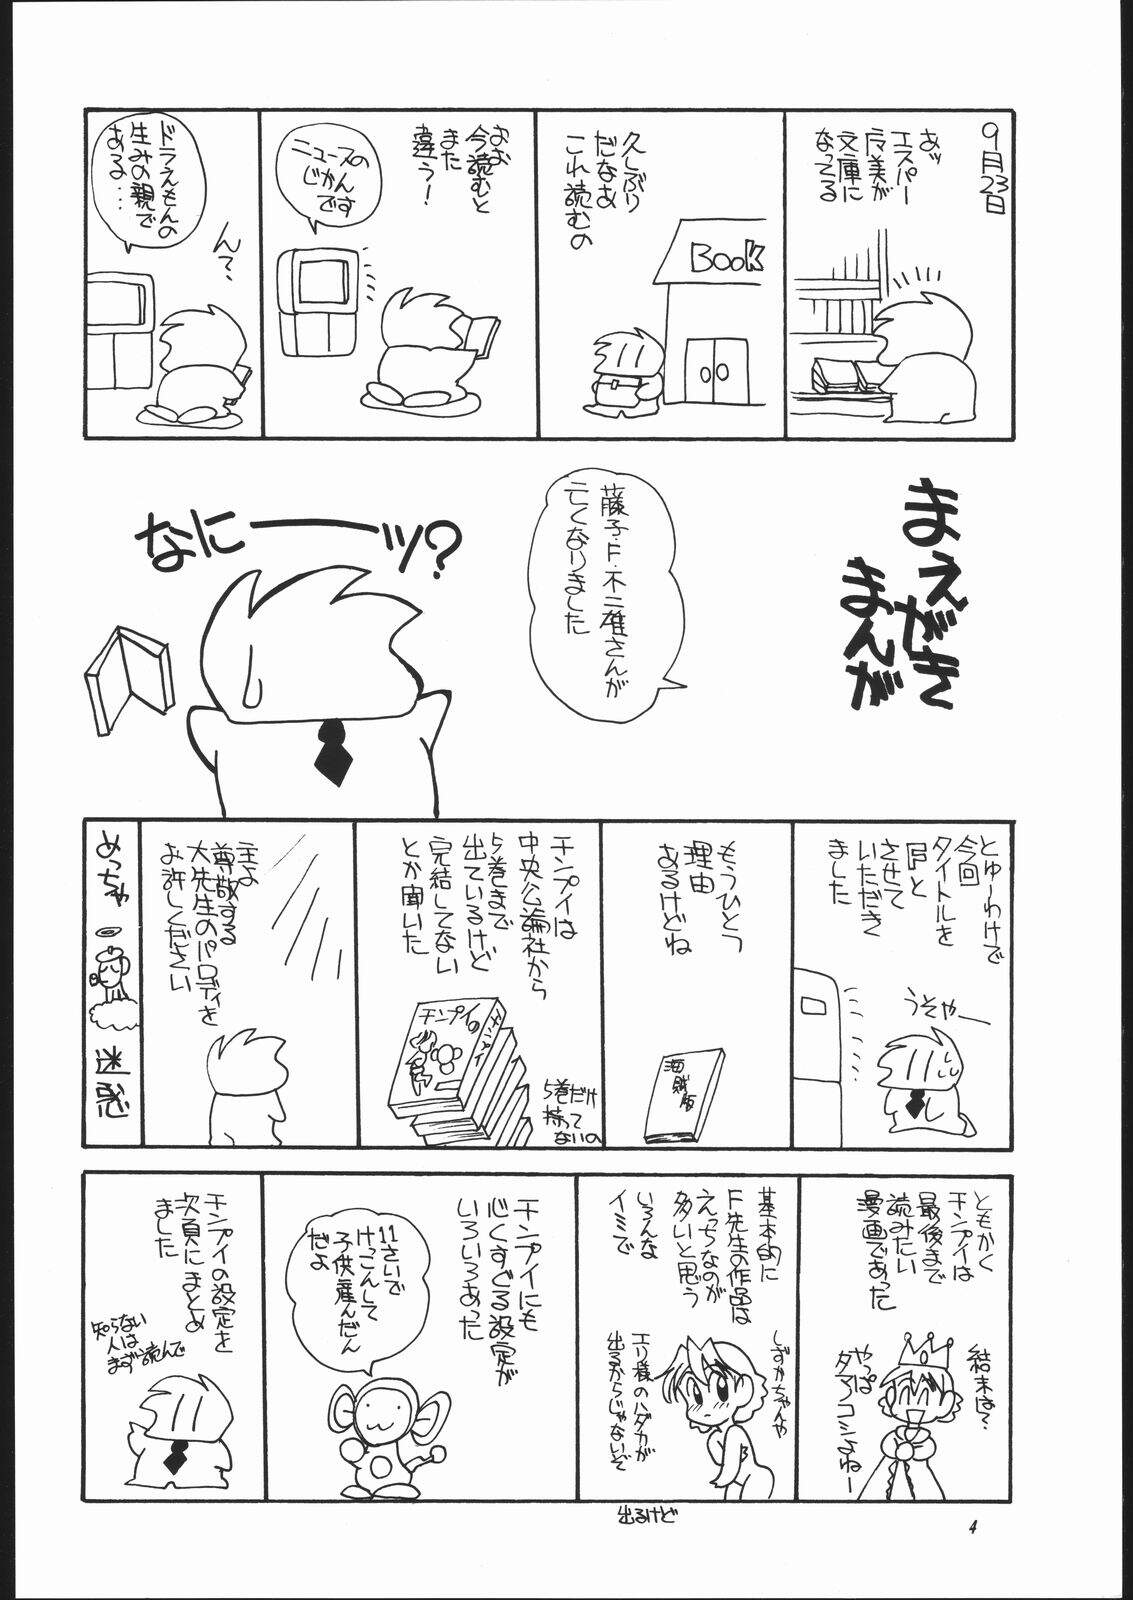 9月23日
あッ
エスパー
魔美が
文庫に
なってる
久しぶり
だなあ
これ読むの
Book
おお
今読むと
また
違う!
ニュースの
じかんです
ドラえもんの
生みの親で
ある・・・
ん?
まえがき
まんが
藤子・F・不二雄さんが
亡くなりました
なにーーッ?
とゆーわけで
今回
タイトルを
『F』と
させて
いただき
ました
うそやー
もうひとつ
理由
あるけどね
海賊版
チンプイは
中央公論社から
5巻まで
出ているけど
完結してない
とか聞いた
チンプイ
チンプイ
5巻だけ
持って
ないの
主よ
尊敬する
大先生のパロディを
お許しください
めっちゃ
迷惑
ともかく
チンプイは
最後まで
読みたい
漫画であった
結末は?
やっぱ
タマノコシよねー
基本的に
F先生の作品は
えっちなのが
多いと思う
いろんな
イミで
しずかちゃんや
エリ様のハダカが
出るからじゃないぞ
出るけど
チンプイにも
心くすぐる設定が
いろいろあった
11さいで
けっこんして
子供産んだん
だよ
チンプイの設定を
次頁にまとめ
ました
知らない
人は
まず読んで
4